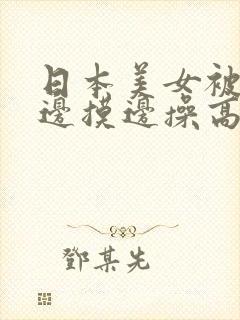 日本美女被
邊摸邊操高
鄧某先